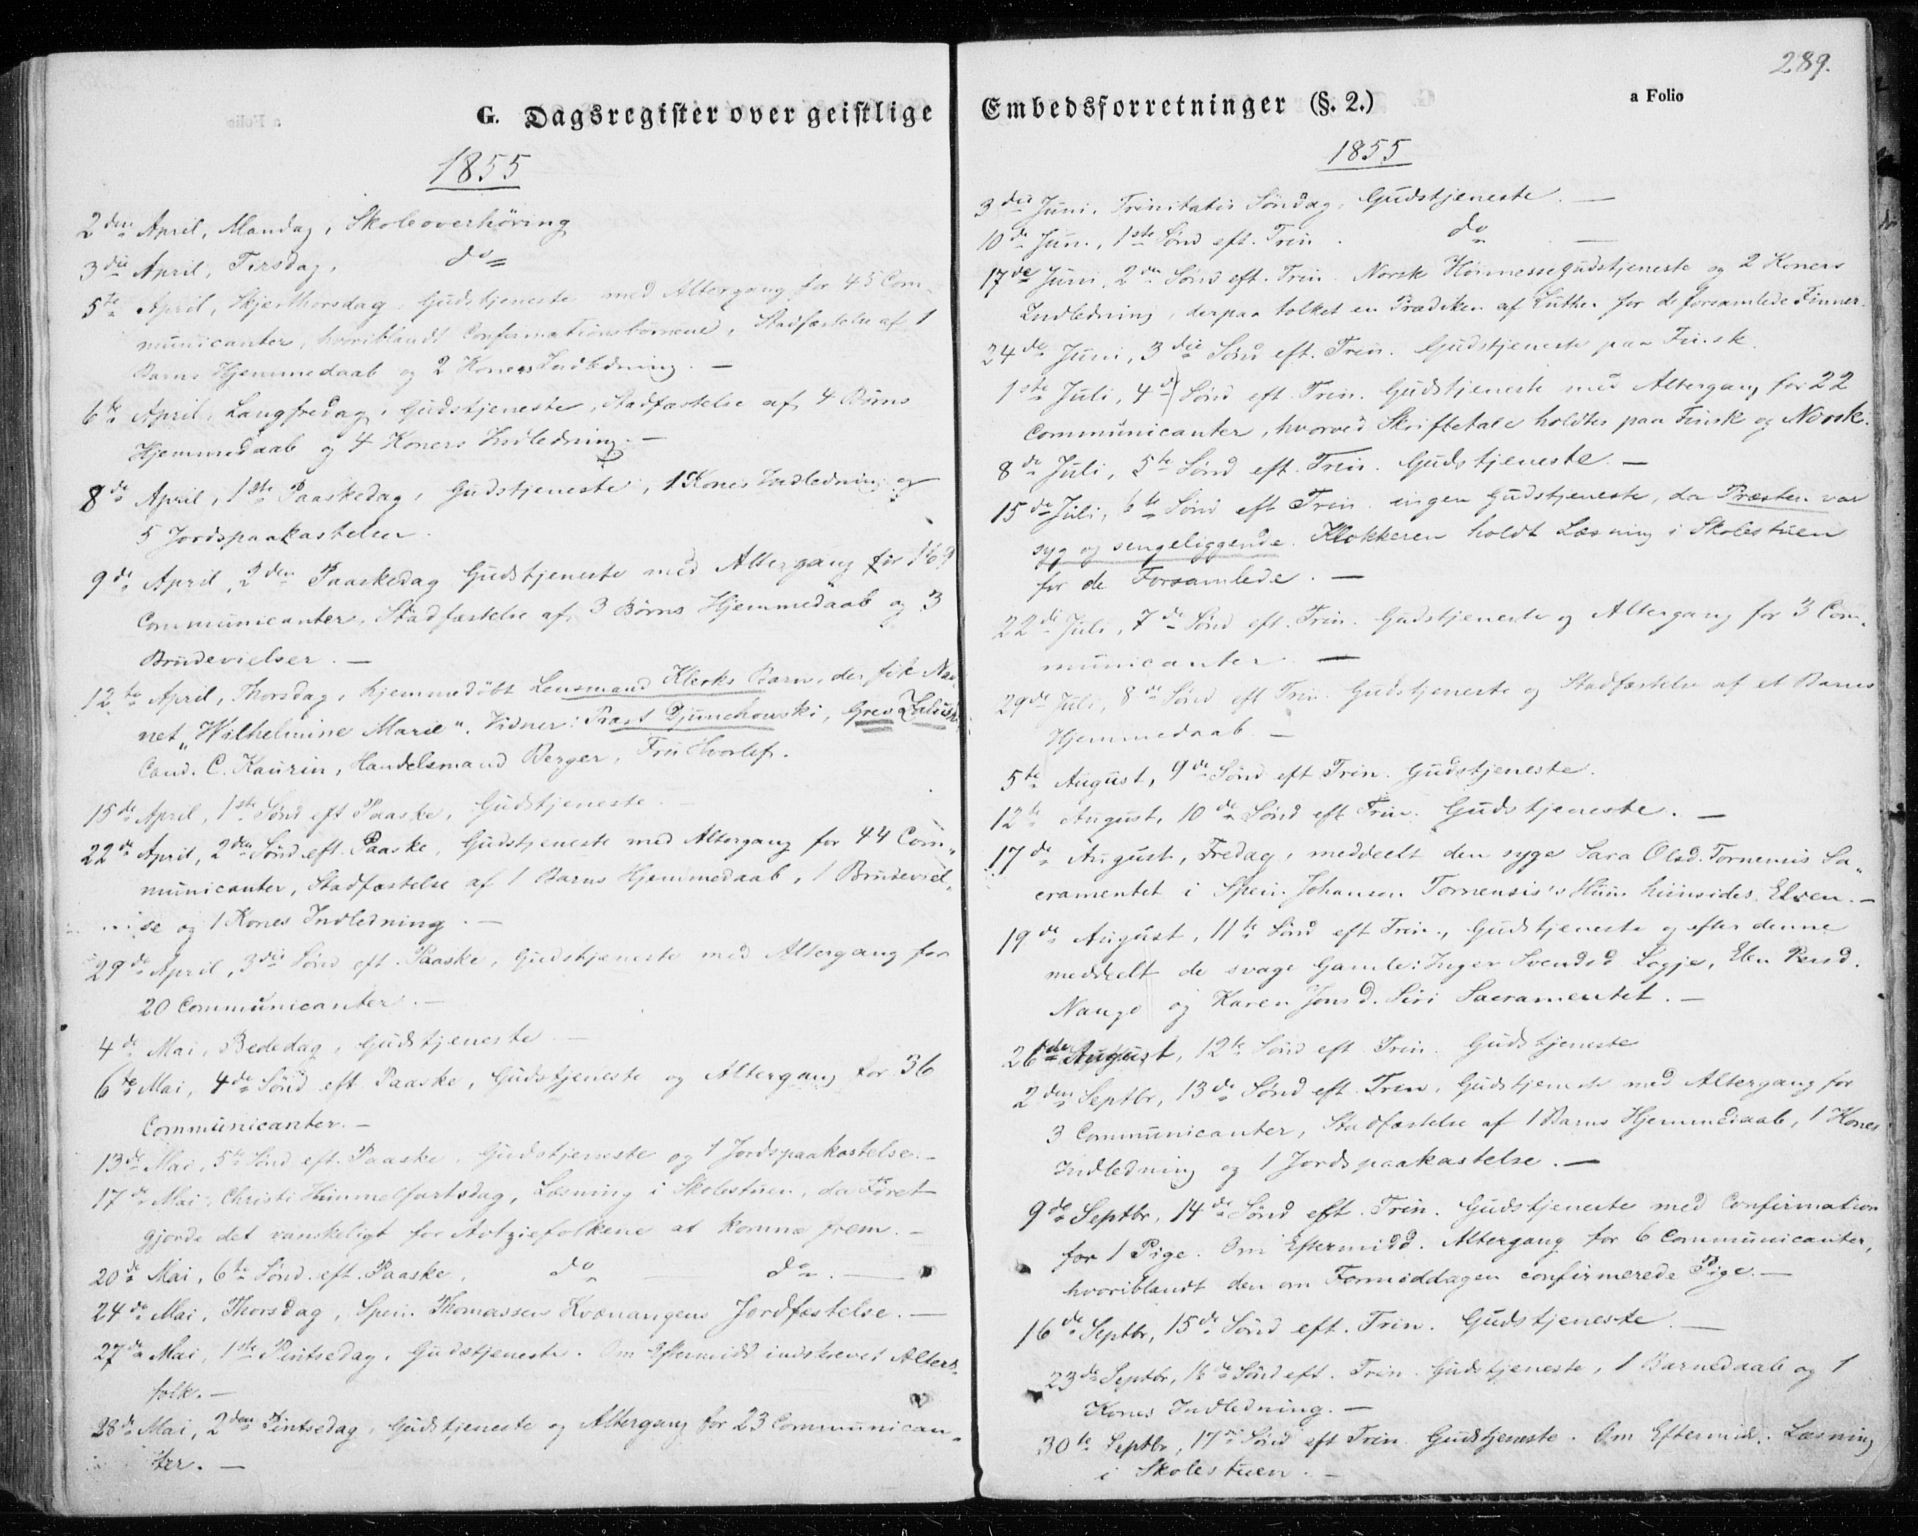 G. Dagsregister over geistlige
1855
2den April, Mandag, Skoleoverhöring
3die April, Tirsdag, do
5te April, Skjærthorsdag, Gudstjeneste med Altergang for 45 Com-
municanter, hvoriblandt Confirmationsbørnene, Stadfæstelse af 1
Barns Hjemmedaab og 2 Koners Indledning. —
6te April, Langfredag, Gudstjeneste, Stadfæstelse af 4 Børns
Hjemmedaab og 4 Koners Indledning. —
8de April, 1ste Paaskedag, Gudstjeneste, 1 Kones Indledning og
5 Jordspaakastelser.
9de April, 2den Paaskedag Gudstjeneste med Altergang for 169
Communicanter, Stadfæstelse af 3 Børns Hjemmedaab og 3
Brudevielser. —
12te April, Thorsdag, hjemmedøbt Lensmand Klerks Barn, der fik Nav-
net „Wilhelmine Marie“. Vidner: Præst Djunchowski, Grev
Cand. C. Kaurin, Handelsmand Berger, Fru Hvorlef.
15de April, 1ste Sønd eft Paaske, Gudstjeneste.
22de April, 2den Sønd. eft. Paaske, Gudstjeneste med Altergang for 44 Com-
municanter, Stadfæstelse af 1 Barns Hjemmedaab, 1 Brudeviel-
se og 1 Kones Indledning. —
29de April, 3die Sønd eft. Paaske, Gudstjeneste med Altergang for
20 Communicanter. —
4de Mai, Bededag, Gudstjeneste —
6te Mai, 4de Sønd eft. Paaske, Gudstjeneste og Altergang for 36
Communicanter. —
13de Mai, 5te Sønd eft. Paaske, Gudstjeneste og 1 Jordspaakastelse. —
17de Mai, Christi Himmelfartsdag, Læsning i Skolestuen, da Føret
gjorde det vanskeligt for Avtziefolkene at komme frem. —
20de Mai, 6te Sønd. eft. Paaske, do — do. —
24de Mai, Thorsdag, Spen. Thomassen Kvænangens Jordfæstelse. —
27de Mai, 1ste Pintsedag, Gudstjeneste. Om Eftermidd indskrevet Alters-
folk. —
28de Mai, 2den Pintsedag, Gudstjeneste og Altergang for 23 Communican-
ter. —
289.
Embedsforretninger (§. 2.)
a Folio
1855
3die Juni, Trinitatis Søndag, Gudstjeneste. —
10de Jun., 1ste Sønd eft. Trin. do —
17de Juni, 2den Sønd eft. Trin. Norsk Høimessegudstjeneste og 2 Koners
Indledning, derpaa tolket en Prædiken af Luther for de forsamlede Finner.
24de Juni, 3die Sønd eft. Trin. Gudstjeneste paa Finsk.
1ste Juli, 4de Sønd eft. Trin. Gudstjeneste med Altergang for 22
Communicanter, hvorved Skriftetale holdtes paa Finsk og Norsk.
8de Juli, 5te Sønd eft. Trin. Gudstjeneste. —
15de Juli, 6te Sønd eft Trin. ingen Gudstjeneste, da Præsten var
syg og sengeliggende. Klokkeren holdt Læsning i Skolestuen
for de Forsamlede. —
22de Juli, 7de Sønd eft. Trin. Gudstjeneste og Altergang for 3 Com-
municanter. —
29de Juli, 8de Sønd eft Trin. Gudstjeneste og Stadfæstelse af et Barns
Hjemmedaab. —
5te August, 9de Sønd eft Trin. Gudstjeneste.
12te August, 10de Sønd eft Trin. Gudstjeneste. —
17de August, Fredag, meddeelt den syge Sara Olsd. Tornensis Sa-
cramentet i Spen. Johansen Tornensis's Huus hiinsides Elven. —
19de August, 11te Sønd eft Trin., Gudstjeneste og efter denne
meddeelt de svage Gamle: Inger Svendsd Logje, Elen Persd.
Nango og Karen Jonsd. Siri Sacramentet. —
26de August, 12te Sønd eft Trin. Gudstjeneste
2den Septbr, 13de Sønd eft. Trin. Gudstjeneste med Altergang for
3 Communicanter, Stadfæstelse af 1 Barns Hjemmedaab, 1 Kones
Indledning og 1 Jordspaakastelse. —
9de Septbr, 14de Sønd eft. Trin. Gudstjeneste med Confirmation
for 1 Pige. Om Eftermidd. Altergang for 6 Communicanter,
hvoriblandt den om Formiddagen confirmerede Pige. —
16de Septbr, 15de Sønd eft. Trin. Gudstjeneste. —
23de Septbr, 16de Sønd eft. Trin. Gudstjeneste, 1 Barnedaab og 1
Kones Indledning. —
30te Septbr, 17de Sønd eft Trin. Gudstjeneste. Om Eftermid. Læsning
i Skolestuen. —